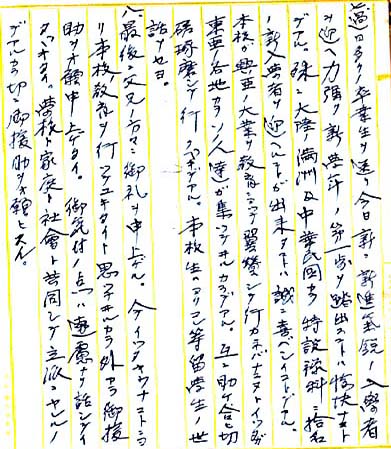 過日多クノ卒業生ヲ送リ今日新ニ新進氣鋭ノ入學者
ヲ迎ヘ力強ク新學年ノ第一歩ヲ踏出スコトハ愉快ナコト
デアル。殊ニ大陸満洲及中華民國カラ特設豫科ニ拾名
ノ新入學者ヲ迎ヘルコトガ出来タコトハ誠ニ喜ベシイコトデアル。
本校ガ興亜ノ大業ヲ教育ニヨッテ翼賛シテ行カネバナラヌトイフ
東亜ノ各地カラノ人達ガ集ッテヰルカラデアル。互ニ助ケ合ヒ切
磋琢磨シテ行クベキデアル。本校生ハヨクコレ等留學生ノ世
話ヲセヨ。
八、最後ニ父兄ノ方々ニ御礼ヲ申上ゲル。
リ本校教育ヲ行ッテユキタイト思ッテヰルカラ外カラ御援
助ヲオ願申上ゲタイ。御気付ノ点ハ遠慮ナク話シテイ
タヾキタイ。學校ト家庭ト社會ト共同シテ立派ニヤルノ
デアルカラ切ニ御援助ヲオ願ヒスル。